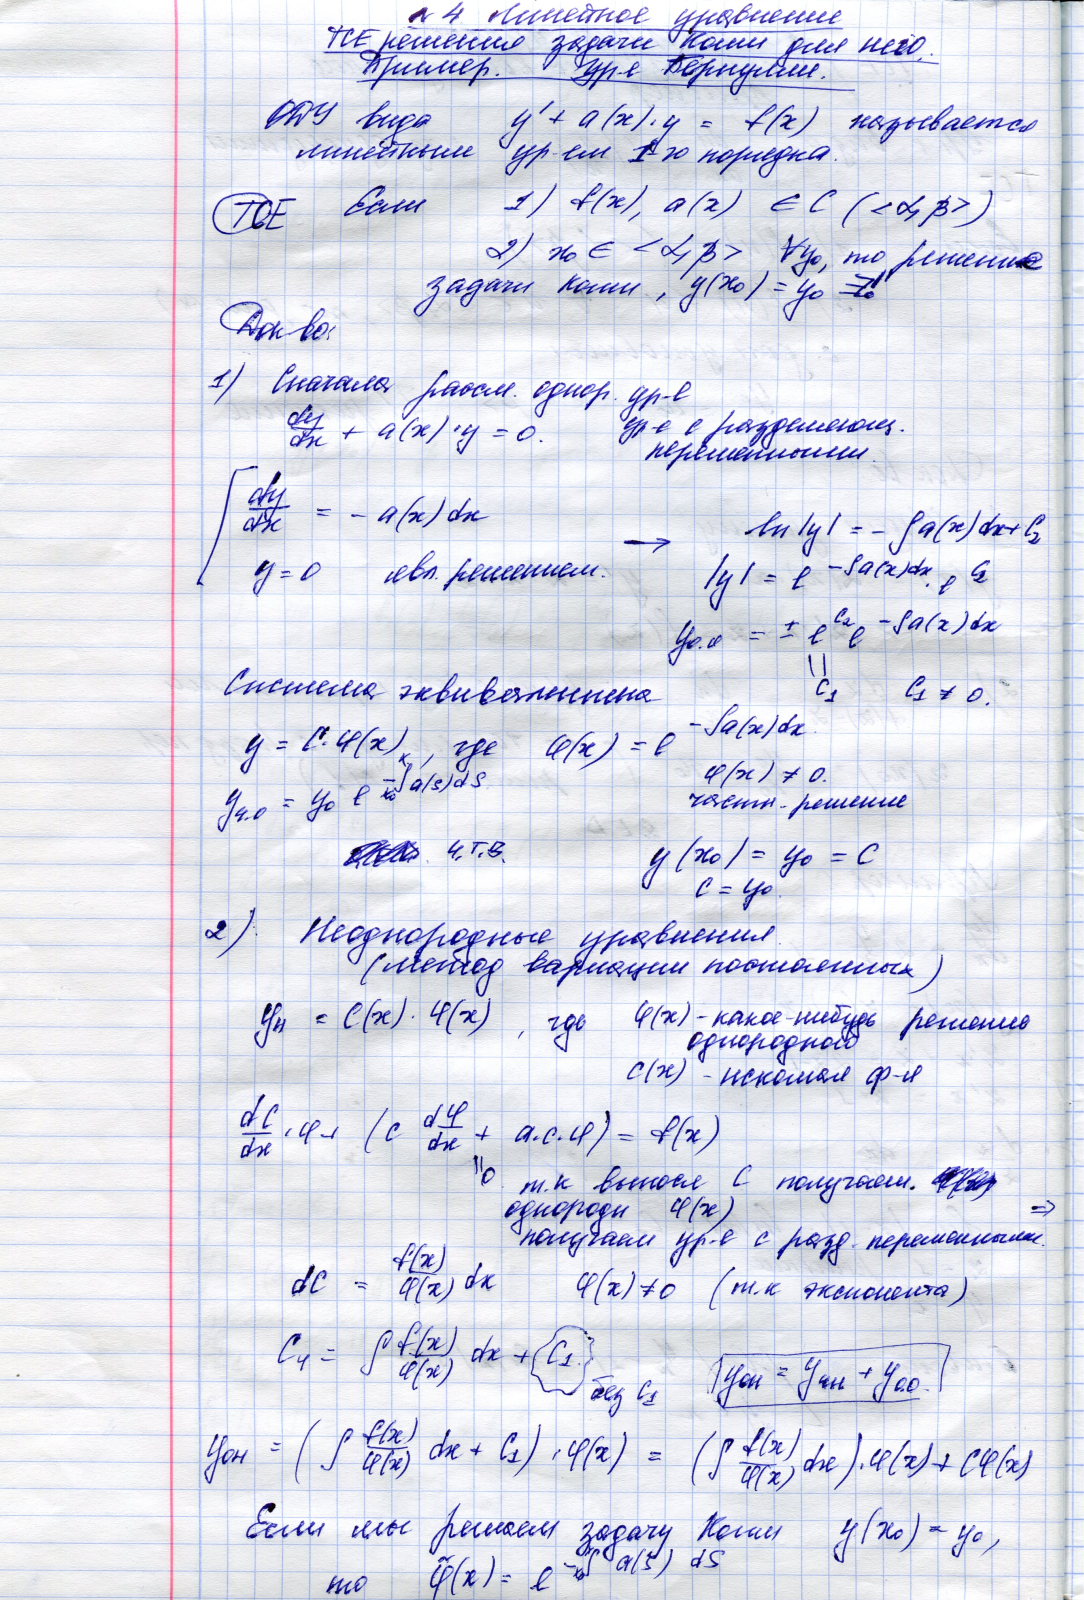 № 4 Линейное уравнение
ТСЕ решения задачи Коши для него.
Пример. Ур-е Бернулли.
ОДУ вида y' + a(x)·y = f(x) называется
линейным ур-ем 1-го порядка.
ТСЕ Если 1) f(x), a(x) ∈ C (<α, β>)
2) x₀ ∈ <α, β> ∀y₀, то решение
задачи Коши, y(x₀) = y₀ ∃
Док-во:
1) Сначала рассм. однор. ур-е
dy/dx + a(x)·y = 0. ур-е с разделяющ.
переменными.
dy/dx = - a(x) dx
y = 0 явл. решением.
→ ln |y| = - ∫a(x)dx + C₂
|y| = e^(-∫a(x)dx) · e^(C₂)
y₀.₀ = ± e^(C₂) e^(-∫a(x)dx)
|| C₁ C₁ ≠ 0.
Система эквивалентна
y = C·φ(x), где φ(x) = e^(-∫a(x)dx)
φ(x) ≠ 0.
yч.о = y₀ e^(-∫_(x₀)^x a(s)ds) частн. решение
ч.т.д. y(x₀) = y₀ = C
C = y₀
2) Неоднородные уравнения
(метод вариации постоянных)
yн = C(x)·φ(x), где φ(x) - какое-нибудь решение
однородного
C(x) - искомая ф-я
dC/dx · φ + (C dφ/dx + a·C·φ) = f(x)
|| 0 т.к вынося C получаем.
однородн φ(x) ⇒
получаем ур-е с разд. переменными.
dC = f(x)/φ(x) dx φ(x) ≠ 0 (т.к экспонента)
Cч = ∫ f(x)/φ(x) dx + C₁ без C₁ yон = yчн + yо.о.
yон = (∫ f(x)/φ(x) dx + C₁)·φ(x) = (∫ f(x)/φ(x) dx)·φ(x) + Cφ(x)
Если мы решаем задачу Коши y(x₀) = y₀,
то φ̃(x) = e^(-∫_(x₀) a(s) ds)